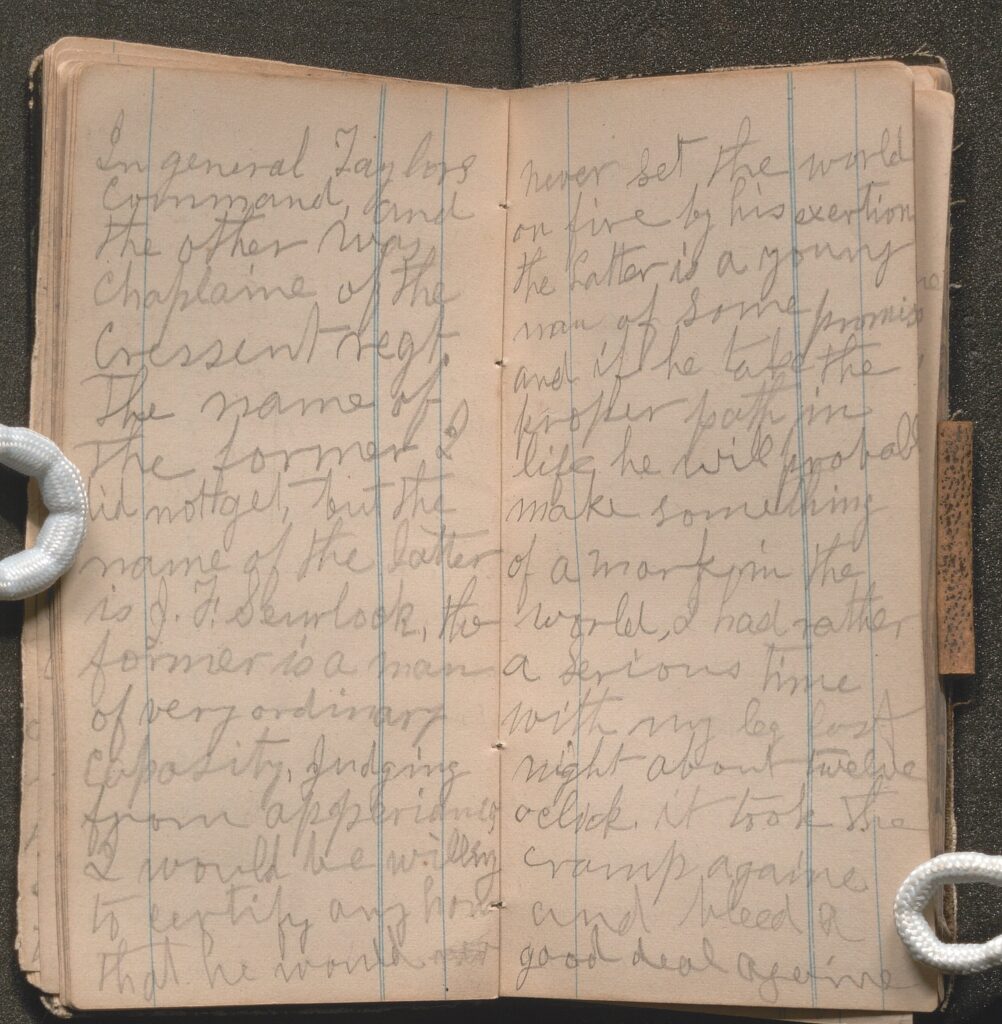 In general Taylors
Command, and
the other was
Chaplaine of the
Cressent regt.
The name of
The former I
did not get, but the
name of the latter
is J. F. Scurlock, the
former is a man
of very ordinary
Capasity, Judging
from appperiance
I would be willing
to certify any how
that he would
never set the world
on fire by his exertion
the latter is a young
man of some promis
and if he take the
proper path in
life, he will probabl
make something
of a mark in the
world, I had rather
a serious time
with my leg last
night about twelve
oclock. it took the
cramp againe
and bleed a
good deal againe